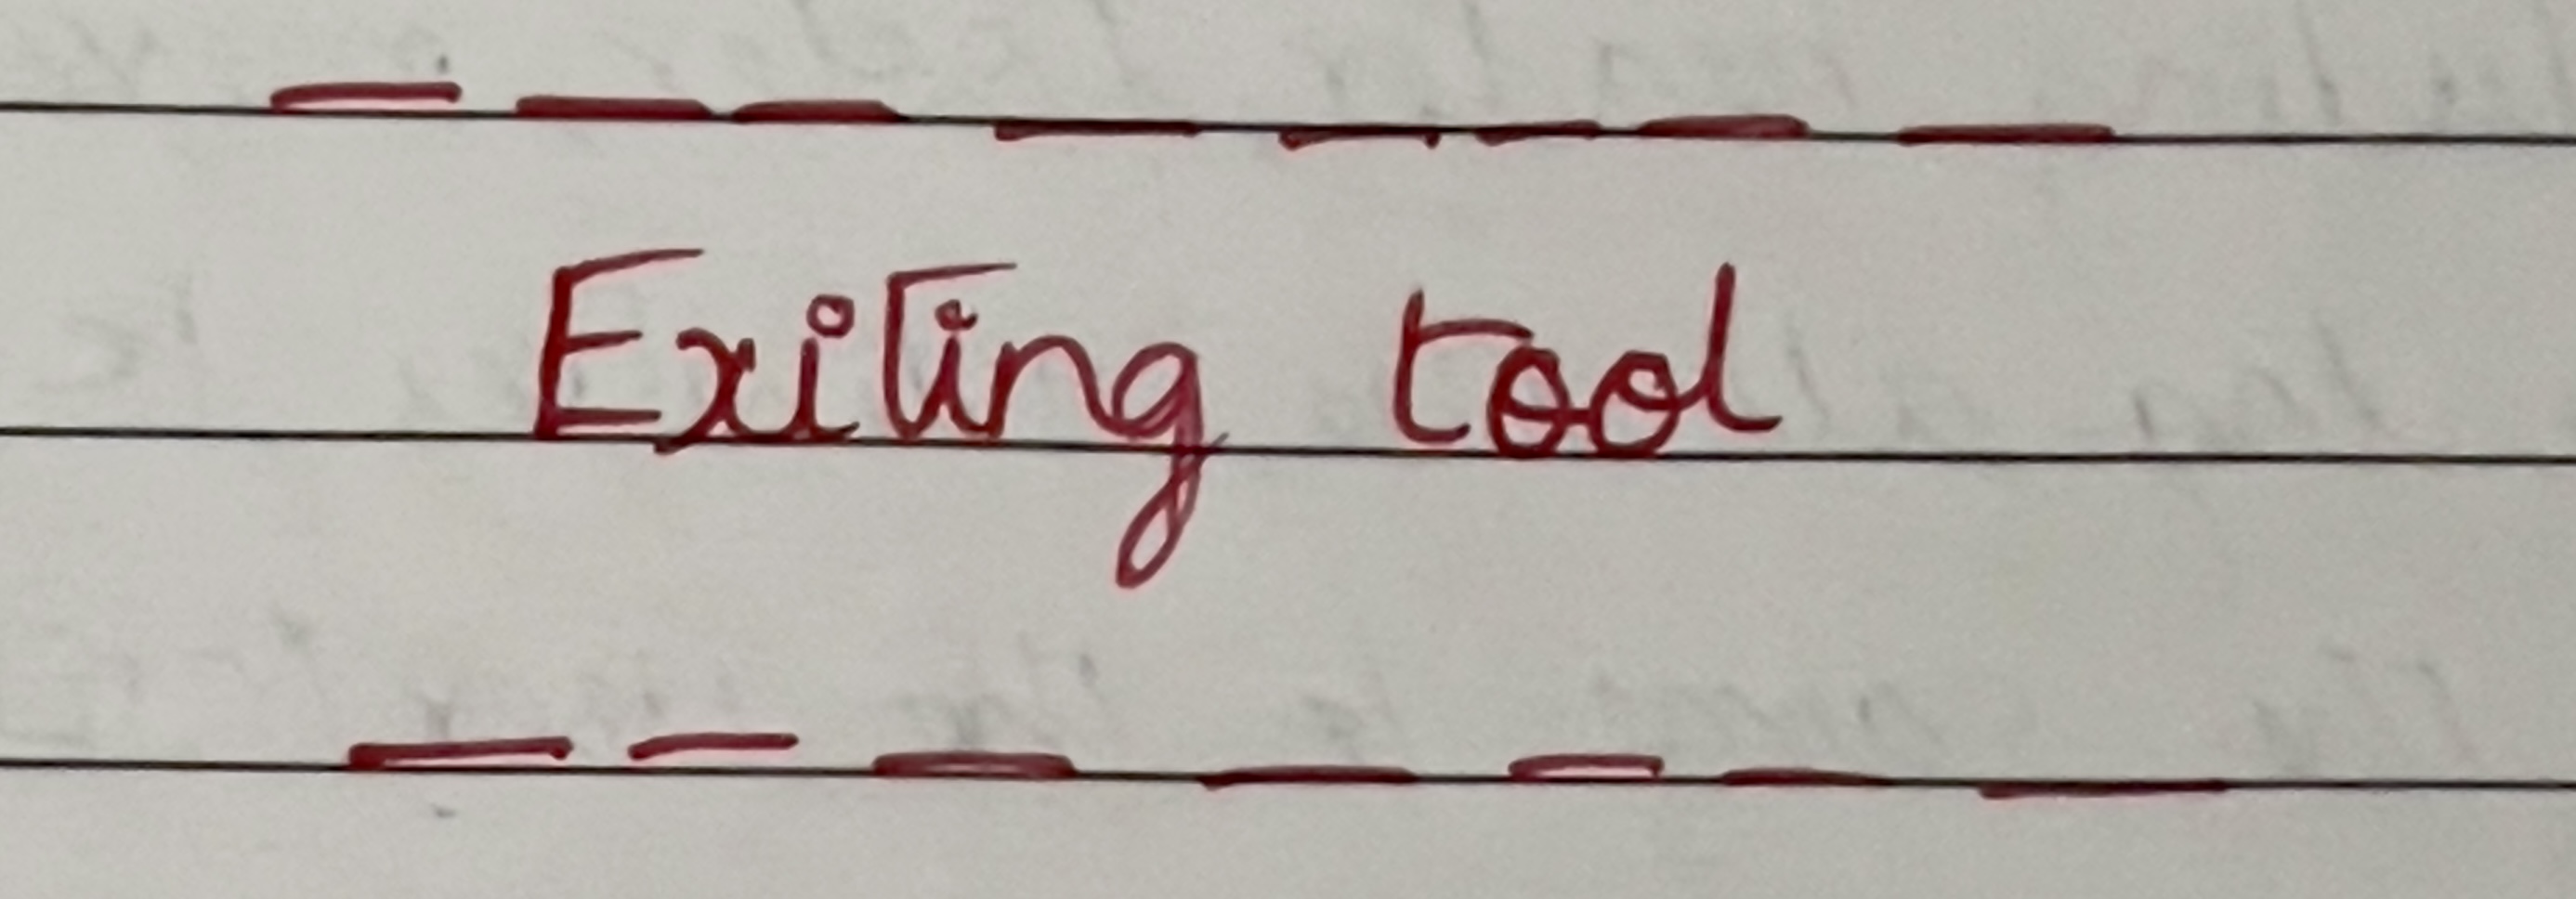 - - - - - - - -
Exiting tool
- - - - - - -